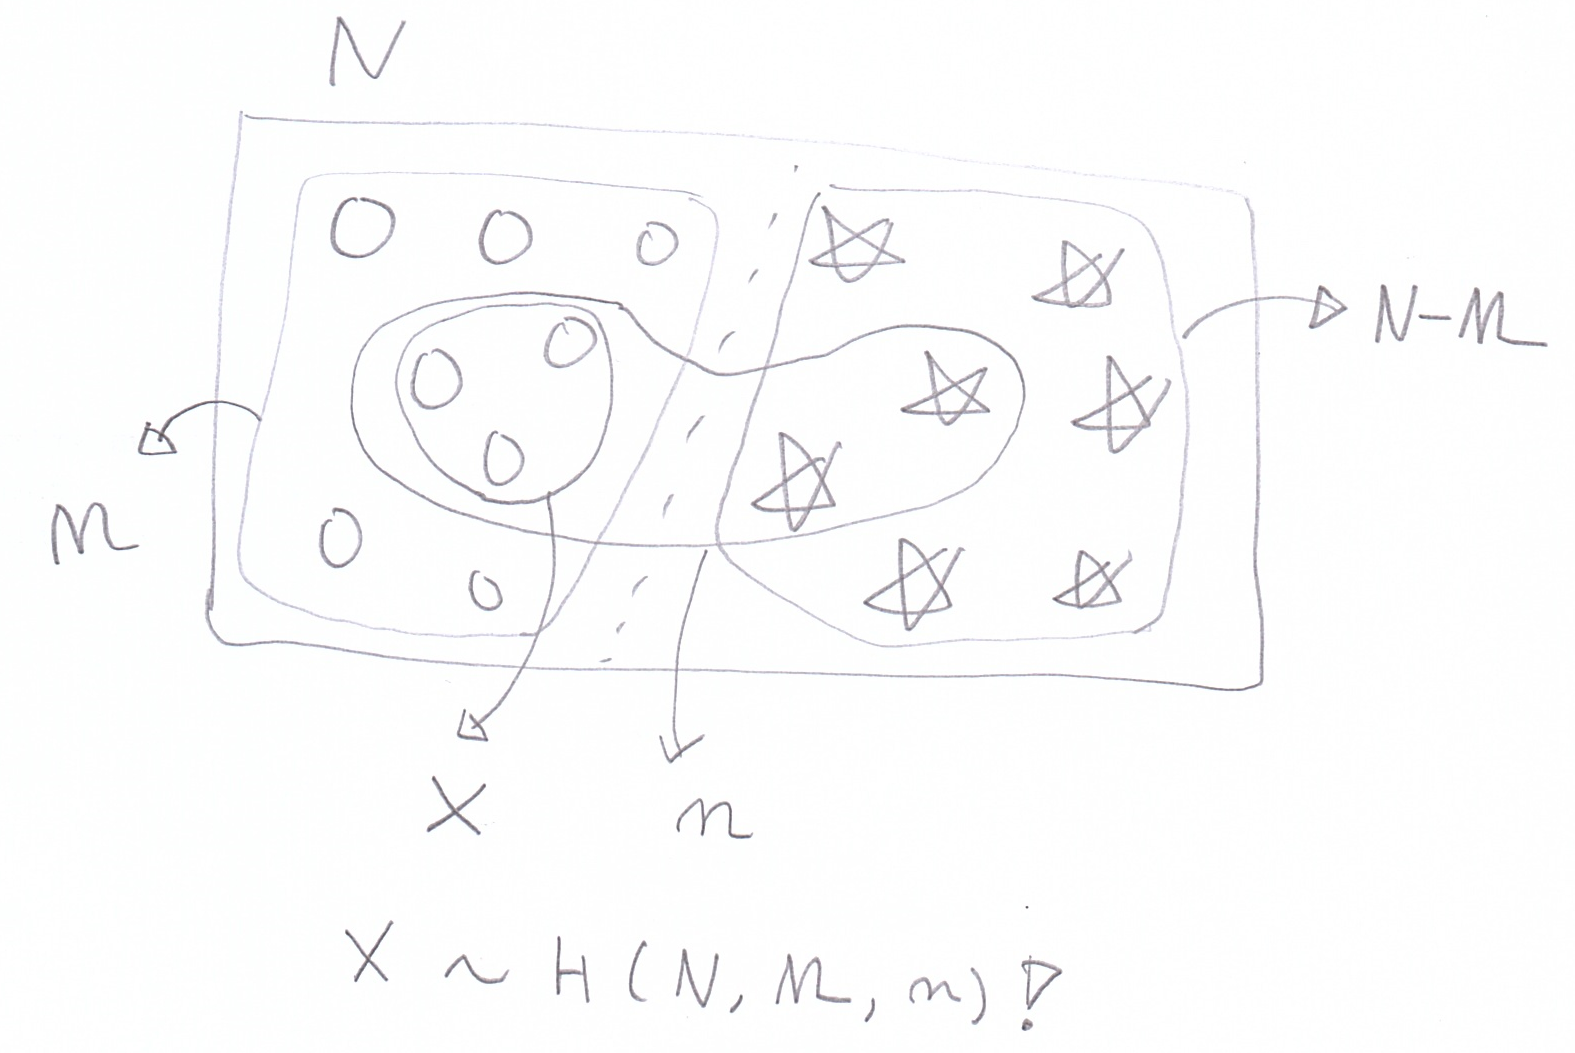 N
N-M
M
X
n
X ~ H(N, M, n)!